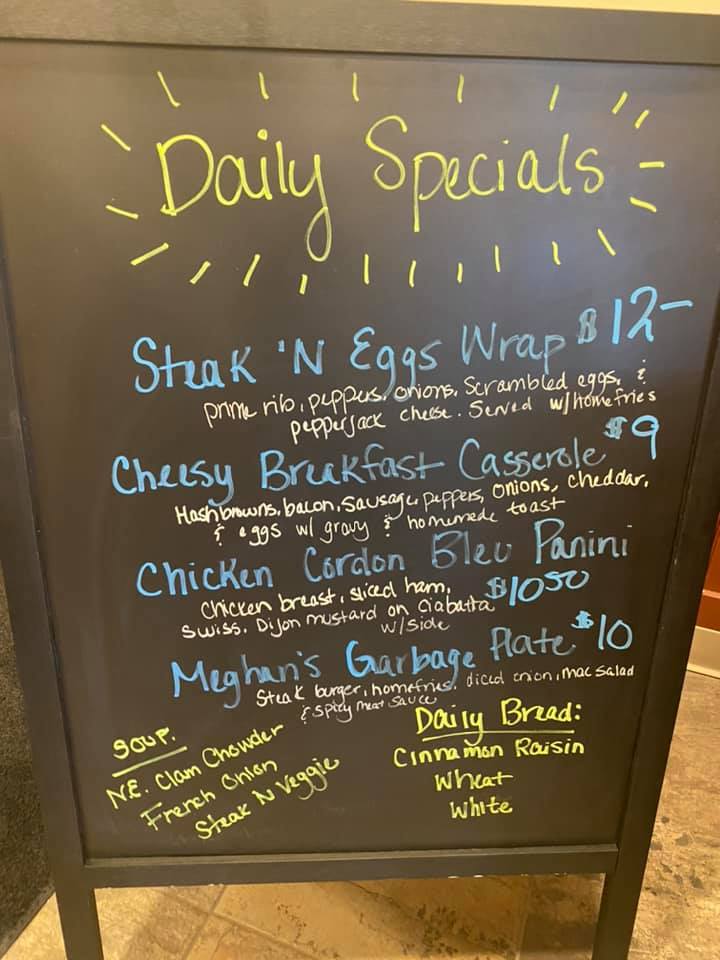 Daily Specials
Steak 'N Eggs Wrap $12-
prime rib, peppers, onions, Scrambled eggs, &
pepperjack cheese. Served w/homefries
Cheesy Breakfast Casserole $9
Hashbrowns, bacon, sausage, peppers, onions, cheddar,
& eggs w/ gravy & homemade toast
Chicken Cordon Bleu Panini
Chicken breast, sliced ham, $10.50
swiss, Dijon mustard on Ciabatta
w/side
Meghan's Garbage Plate $10
Steak burger, homefries, diced onion, mac salad
& spicy meat sauce
Soup.
N.E. Clam Chowder
French Onion
Steak N Veggie
Daily Bread:
Cinnamon Raisin
Wheat
White